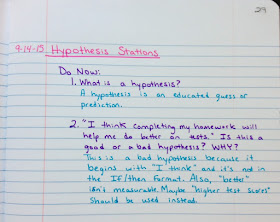 29
9-14-15 Hypothesis Stations
Do Now:
1. What is a hypothesis?
A hypothesis is an educated guess or
prediction.
2. "I think completing my homework will
help me do better on tests." Is this a
good or a bad hypothesis? WHY?
This is a bad hypothesis because it
begins with "I think" and it's not in
the If/then Format. Also, "better"
isn't measurable. Maybe "higher test scores"
should be used instead.